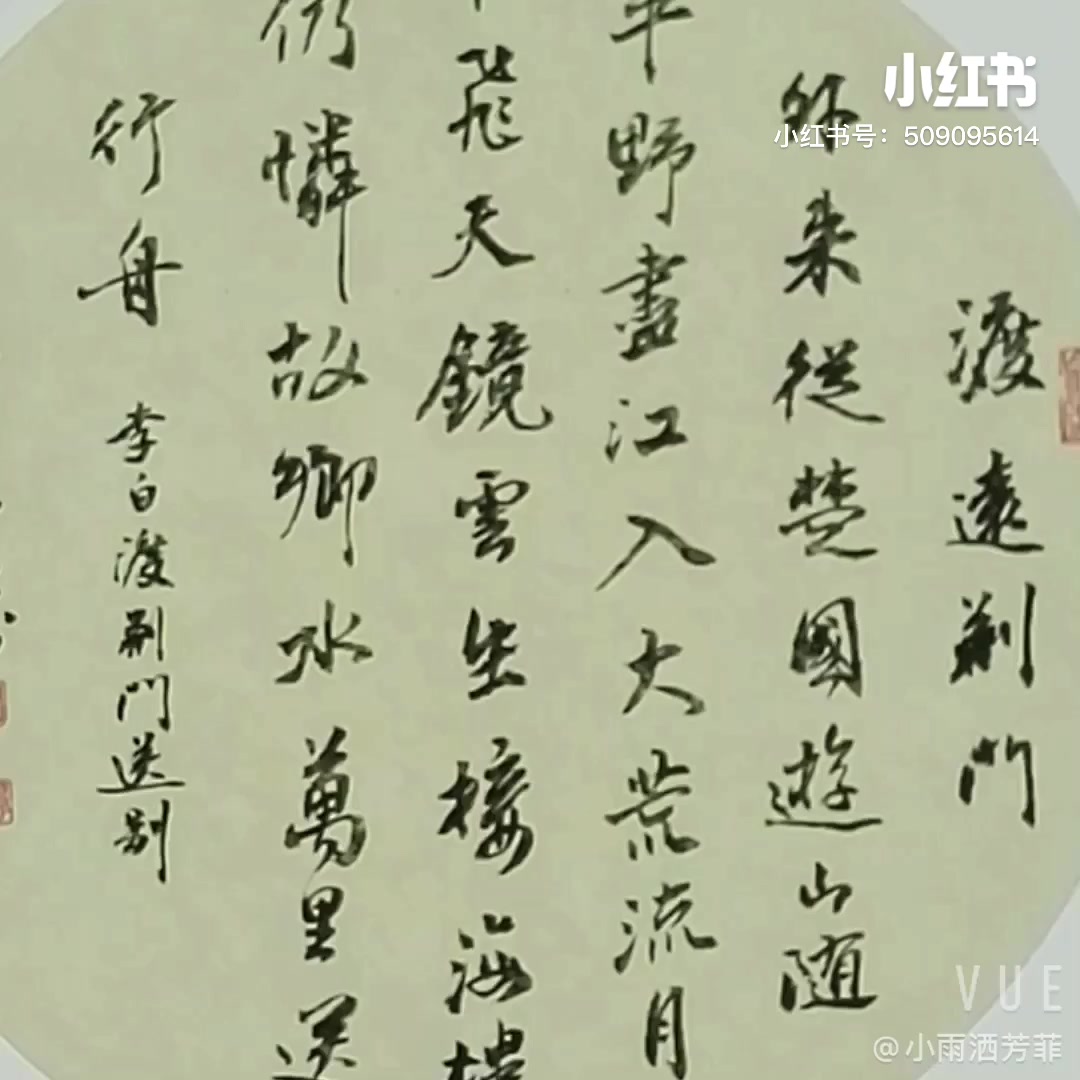 小红书
小红书号：509095614
渡遠荊門
外来從楚國遊山随
平野盡江入大荒流月
飛天鏡雲生接海樓
仍憐故鄉水萬里送
行舟
李白渡荊門送别
VUE
@小雨洒芳菲